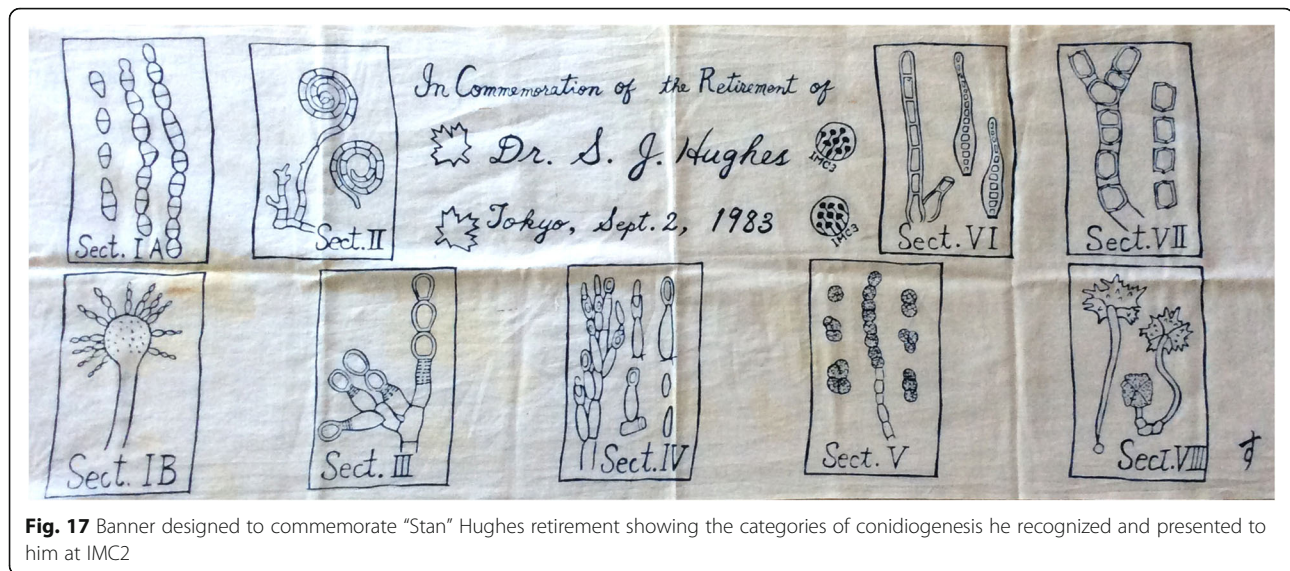 In Commemoration of the Retirement of
Dr. S. J. Hughes
IMC3
Tokyo, Sept. 2, 1983
IMC3
Sect. IA
Sect. II
Sect. VI
Sect. VII
Sect. IB
Sect. III
Sect. IV
Sect. V
Sect. VIII
す
Fig. 17 Banner designed to commemorate “Stan” Hughes retirement showing the categories of conidiogenesis he recognized and presented to
him at IMC2